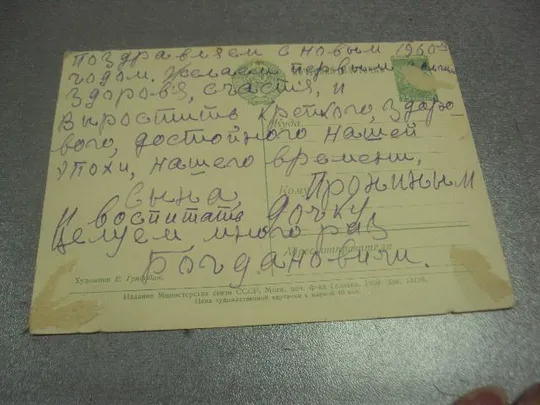 поздравляем с новым 1960
годом. Желаем первым
здоровя, счастья, и
Выростить крепкого, здоро-
вого, достойного нашей
эпохи, нашего времени,
Сына, Прониным
И воспитать дочку
Целуем много раз
Богдановичи.
Куда
Кому
Адрес отправителя
Художник Е. Гундобин
Издание Министерства связи СССР, Моск. печ. ф-ка Гознака. 1959
Цена художественной карточки с маркой 40 коп.